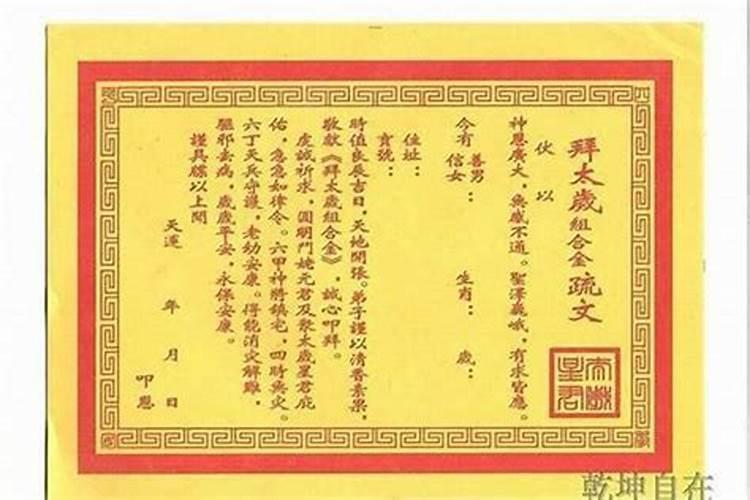 拜太歲組合金疏文
太歲星君
伏以
神恩廣大，無感不通。聖澤巍峨，有求皆應。
今有善男信女：　生肖：　歲：
住址：
寶號：
時值良辰吉日，天地開張。弟子謹以清香素果，
敬獻《拜太歲組合金》，誠心叩拜。
虔誠祈求，圓明斗姥元君及眾太歲星君庇
佑，急急如律令。六甲神將鎮宅，四時無災。
六丁天兵守護，老幼安康。得能消災解難，
驅邪去病，歲歲平安，永保安康。
謹具牒以上聞
天運　年　月　日　叩恩
乾坤自在